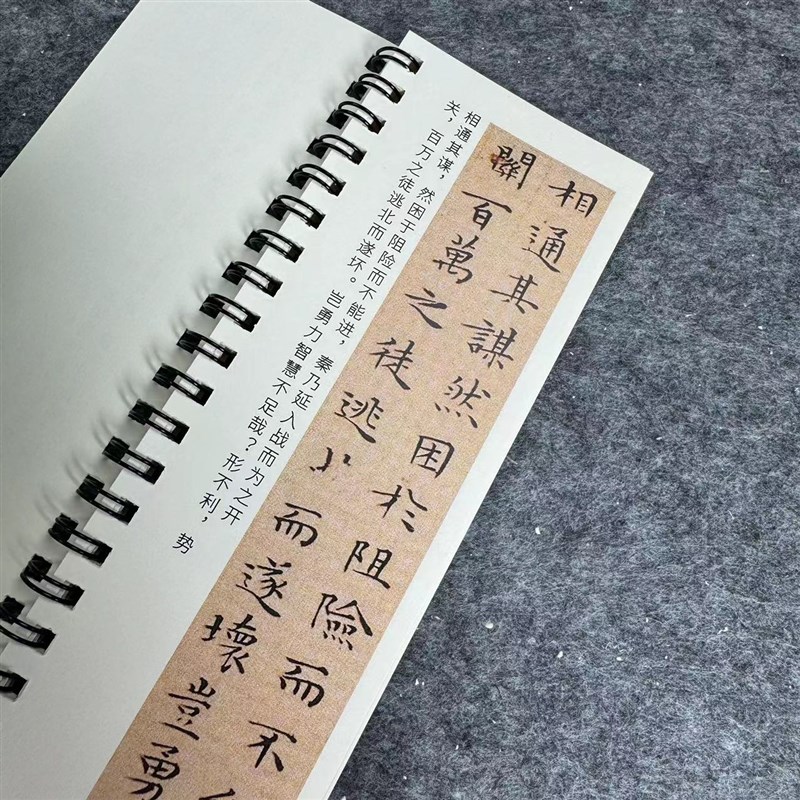 相通其謀然困於阻險而不
關百萬之徒逃北而遂壞豈勇
相通其谋，然困于阻险而不能进，秦乃延入战而为之开
关，百万之徒逃北而遂坏。岂勇力智慧不足哉？形不利，势